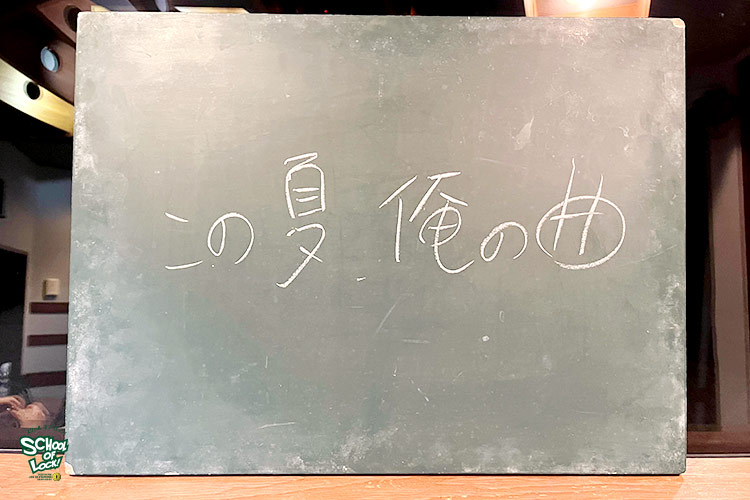 この夏、俺の曲
SCHOOL
OF
LOCK!